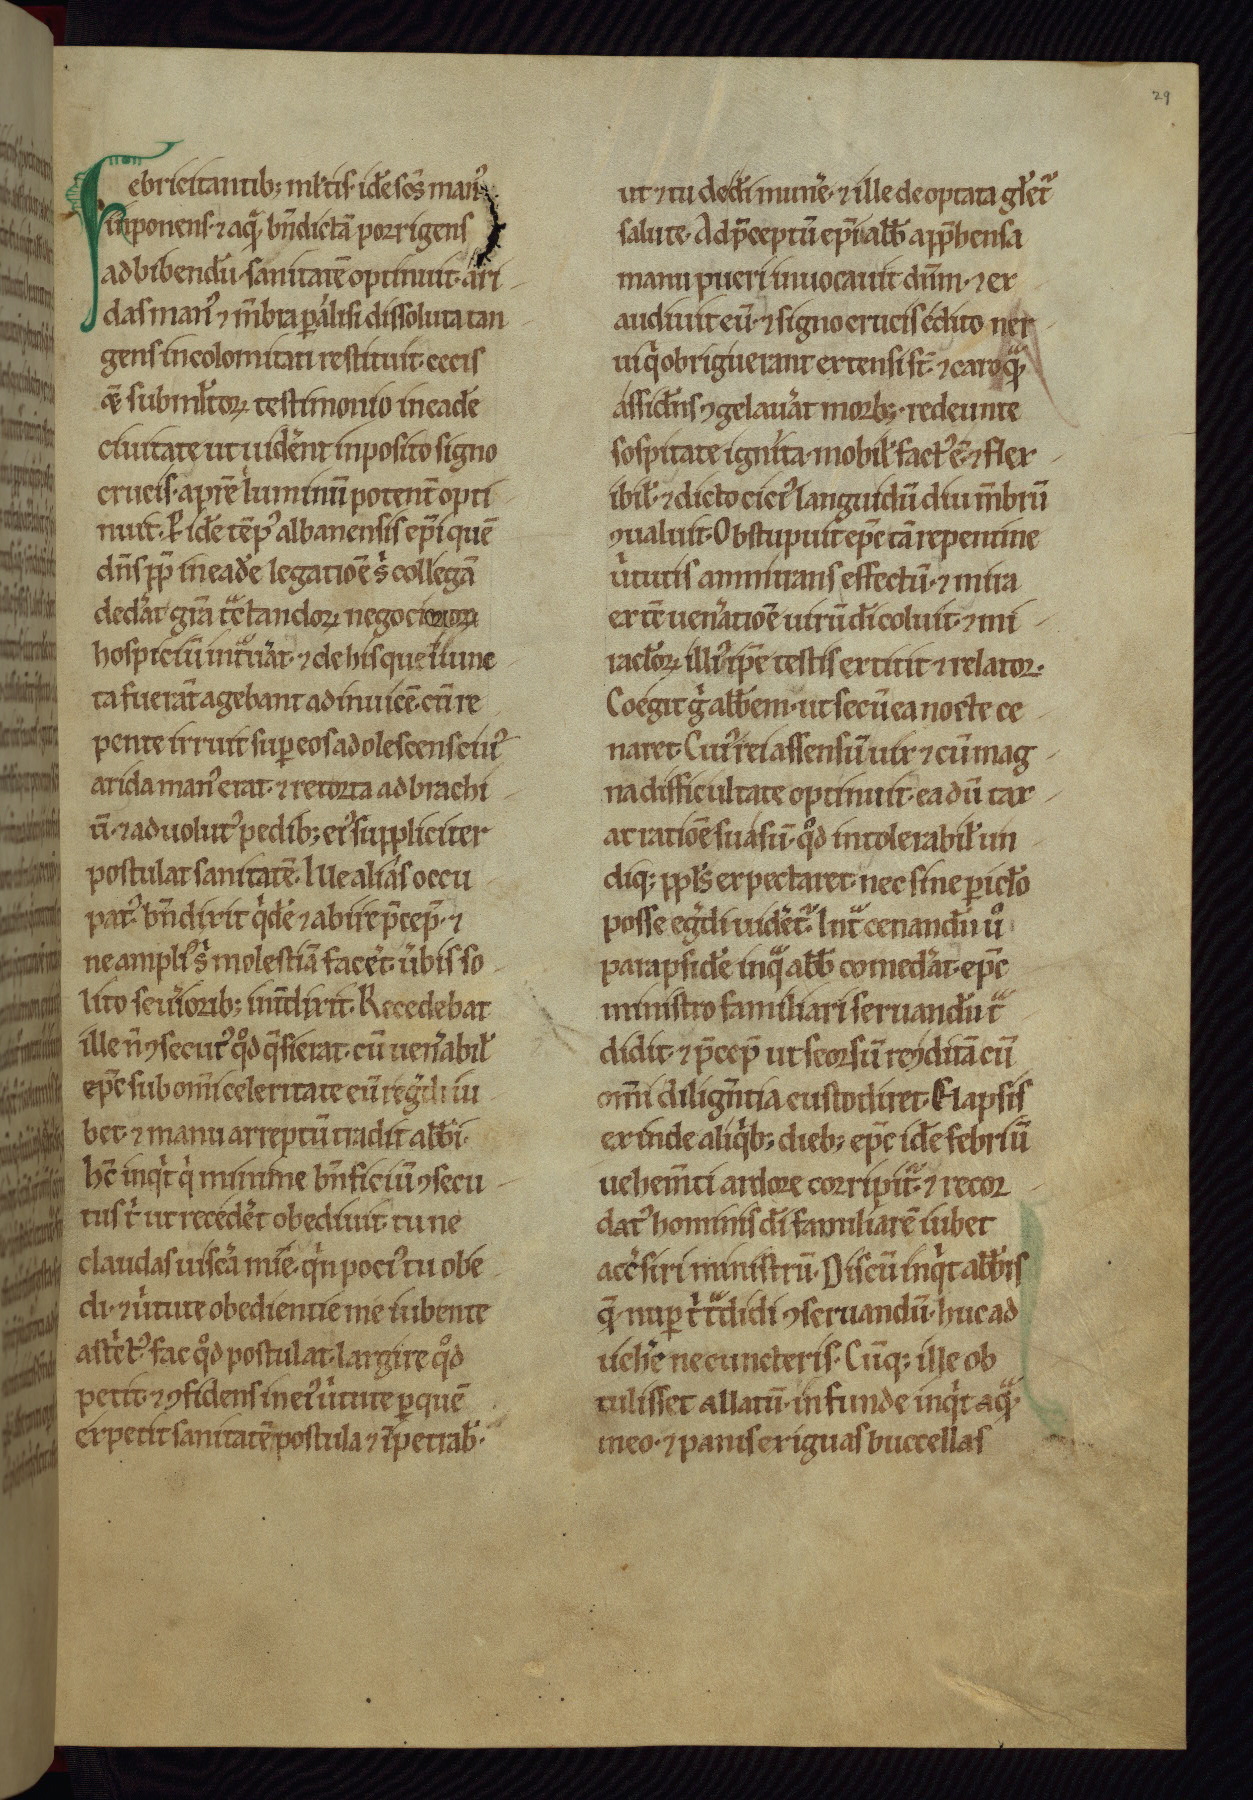 29
Febricitantib; ml̄tis· idē sc̄s man᷒
inponens· ⁊ aq̄· bn̄dictā porrigens
ad bibendū· sanitatē optinuit· ari
das man᷒ ⁊ m̄bra paͣlisi dissoluta tan
gens incolomitati restituit· cecis
q̨ subml̄torꝝ testimonio in eadē
ciuitate ut uidēnt inposito signo
crucis· a pr̄e luminū potent̄ opti
nuit· Eidē tēp᷒ albanensis ep̄i quē
dn̄s pp̄ in eadē legatiōe s collegā
dedāt· gr̄a tͣctandorꝝ negociorum
hospiciū intͣuāt· ⁊ de his que iniunc
ta fuerāt agebant adinuicē· cū re
pente irruit sup eos adolescens cui᷒
arida man᷒ erat· ⁊ retorta ad brachi
ū· ⁊ aduolut᷒ pedib; ei᷒ suppliciter
postulat sanitatē· Ille alias occu
pat᷒ bn̄dixit qͥdē ⁊ abire p̄cep̄· ⁊
ne ampli᷒ sͥ molestiā facēt· ūbis so
lito seūiorib; int̄dixit· Recedebat
ille n̄ ꝯsecut᷒ qͦd q̄sierat· cū uen̄abil̄
ep̄c sub om̄i celeritate eū regͣdi iu
bet· ⁊ manu arreptū tradit abb̄i·
hͨ inqͥt qͥ minime bn̄ficiū ꝯsecu
tus tͥ ut recedēt obediuit· tu ne
claudas uiscā mīe· qͥn poci᷒ tu obe
di· ⁊ uͥtute obedientie me iubente
astͥct᷒ fac qͦd postulat· largire qͦd
petit· ⁊ ꝯfidens in ei᷒ uͥtute p quē
expetit sanitatē postula ⁊ īpetrab̄·
ut ⁊ tu dedi munē· ⁊ ille de optata gͣtet᷑
salute· Ad p̄ceptū ep̄i abb̄ app̄hensa
manu pueri inuocauit dn̄m· ⁊ ex
audiuit eū· ⁊ signo crucis edito ner
ui qͥ obriguerant extensi st̄· ⁊ caro qͣ
assidūs ꝯgelauāt morb;· redeunte
sospitate ignīta· mobil̄ fact᷒ ē· ⁊ flex
ibil̄· ⁊ dicto cici᷒ languidū diu m̄brū
ꝯualuit· Obstupuit ep̄c tā repentine
uͥtutis ammirans effectū· ⁊ mira
ex tē uenāatiōe uirū dī coluit· ⁊ mi
raclorꝝ illi᷒ ip̄e testis extitit ⁊ relator·
Coegit gͥ abb̄em· ut secū ea nocte ce
naret· Cui᷒ rei assensū uix ⁊ cū mag
na difficultate optinuit· ea dū tax
at ratiōe suasū· qͦd intolerabil̄ un
diq; ppl̄s expectaret· nec sine picl̄o
posse egͣdi uidēt᷑· Intͣ cenandū uͦ
parapsidē in qͣ abb̄ comedāt· ep̄c
ministro familiari seruandū tͣ
didit· ⁊ p̄cep̄ ut seorsū recōditā cū
om̄i dilign̄tia custodiret· Elapsis
exinde aliqͥb; dieb; ep̄c idē febriū
uehem̄ti ardore corripit᷑· ⁊ recor
dat᷒ hominis dī familiarē iubet
accͥsiri ministrū· Discū inqͥt abb̄is
q̄ nup tͥ tͣdidi ꝯseruandū· huc ad
uehē ne cuncteris· Cūq; ille ob
tulisset allatū· infunde inqͥt aqͣ
meo· ⁊ panis exiguas buccellas